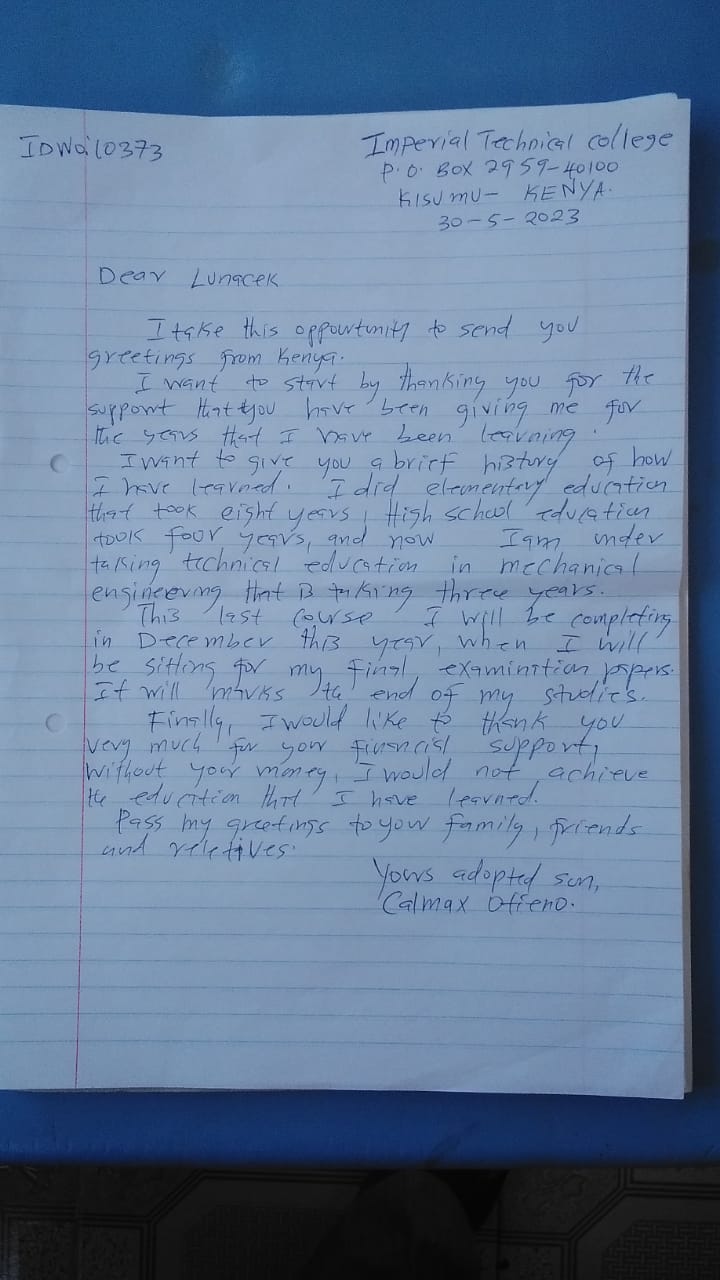 IDWa10373
Imperial Technical college
P.O. BOX 2959-40100
KISUMU- KENYA.
30-5-2023
Dear Lunacek
I take this oppourtunity to send you
greetings from Kenya.
I want to start by thanking you for the
support that you have been giving me for
the years that I have been learning.
I want to give you a brief history of how
I have learned. I did elementary education
that took eight years, High school education
took four years, and now I am under
taking technical education in mechanical
engineering that is taking three years.
This last course I will be completing
in December this year, when I will
be sitting for my final examination papers.
It will marks the end of my studies.
Finally, I would like to thank you
very much for your financial support,
without your money, I would not achieve
the education that I have learned.
Pass my greetings to your family, friends
and reletives.
Yours adopted son,
Calmax Otieno.